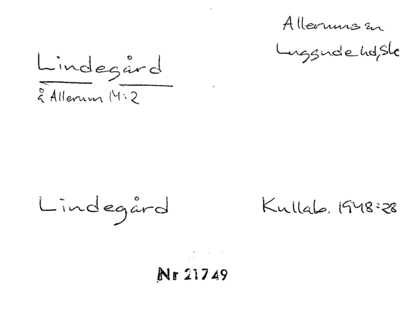 Allerums sn
Luggude hd, Sk
Lindegård
å Allerum 14:2
Lindegård
Kullab. 1948:28
Nr 21749